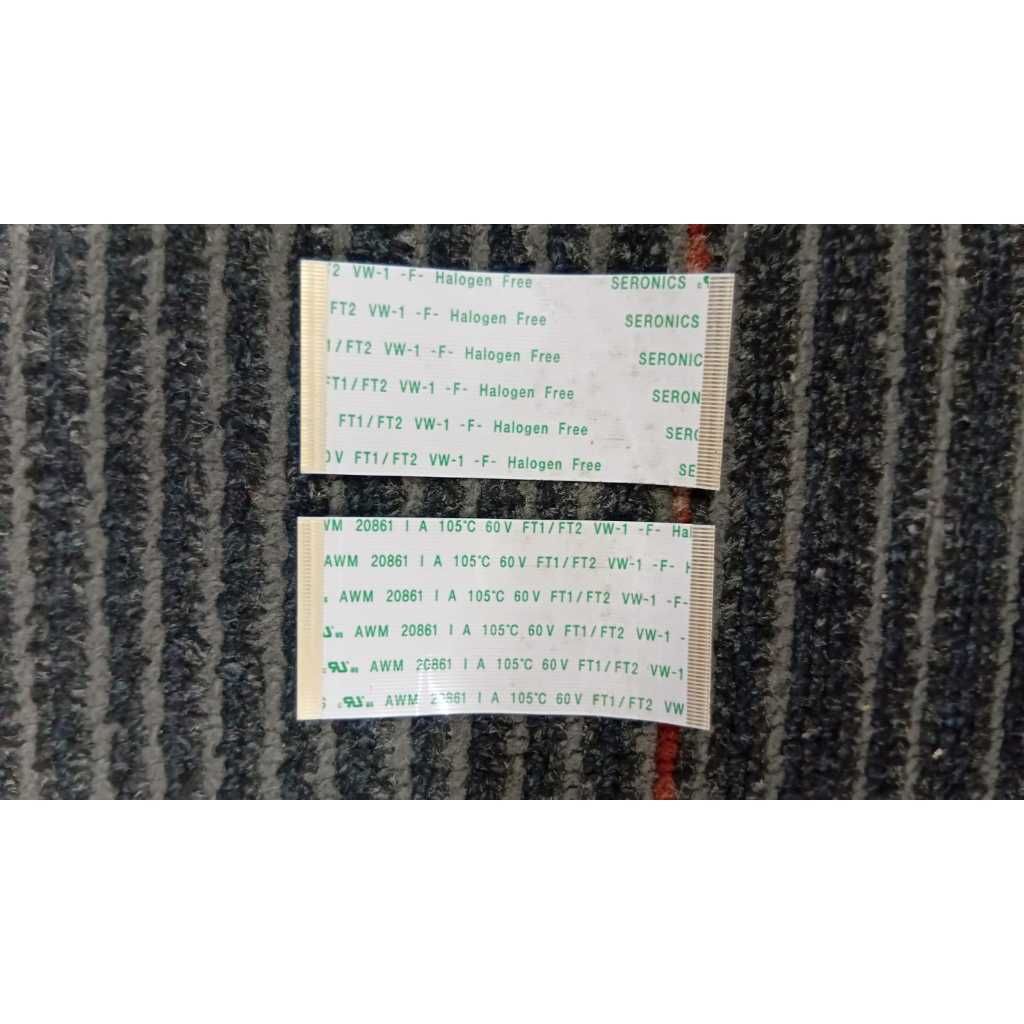 2 VW-1 -F- Halogen Free SERONICS
FT2 VW-1 -F- Halogen Free SERONICS
1/FT2 VW-1 -F- Halogen Free SERONIC
FT1/FT2 VW-1 -F- Halogen Free SERON
FT1/FT2 VW-1 -F- Halogen Free SERO
0V FT1/FT2 VW-1 -F- Halogen Free SE
WM 20861 I A 105°C 60V FT1/FT2 VW-1 -F- Hal
AWM 20861 I A 105°C 60V FT1/FT2 VW-1 -F- H
AWM 20861 I A 105°C 60V FT1/FT2 VW-1 -F-
AWM 20861 I A 105°C 60V FT1/FT2 VW-1 -
AWM 20861 I A 105°C 60V FT1/FT2 VW-1
S AWM 20861 I A 105°C 60V FT1/FT2 VW